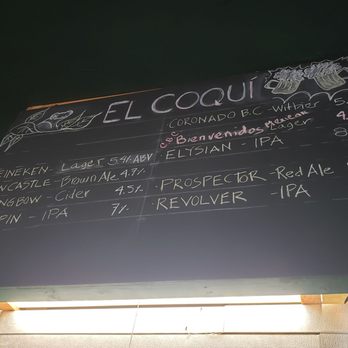 EL COQUÍ
EINEKEN - Lager 5.4% ABV
WCASTLE - Brown Ale 4.7%
NGBOW - Cider 4.5%
PIN - IPA 7%
CORONADO B.C - Witbier 5.
Bienvenidos Mexican Lager 4.
ELYSIAN - IPA 8
· PROSPECTOR - Red Ale
· REVOLVER - IPA